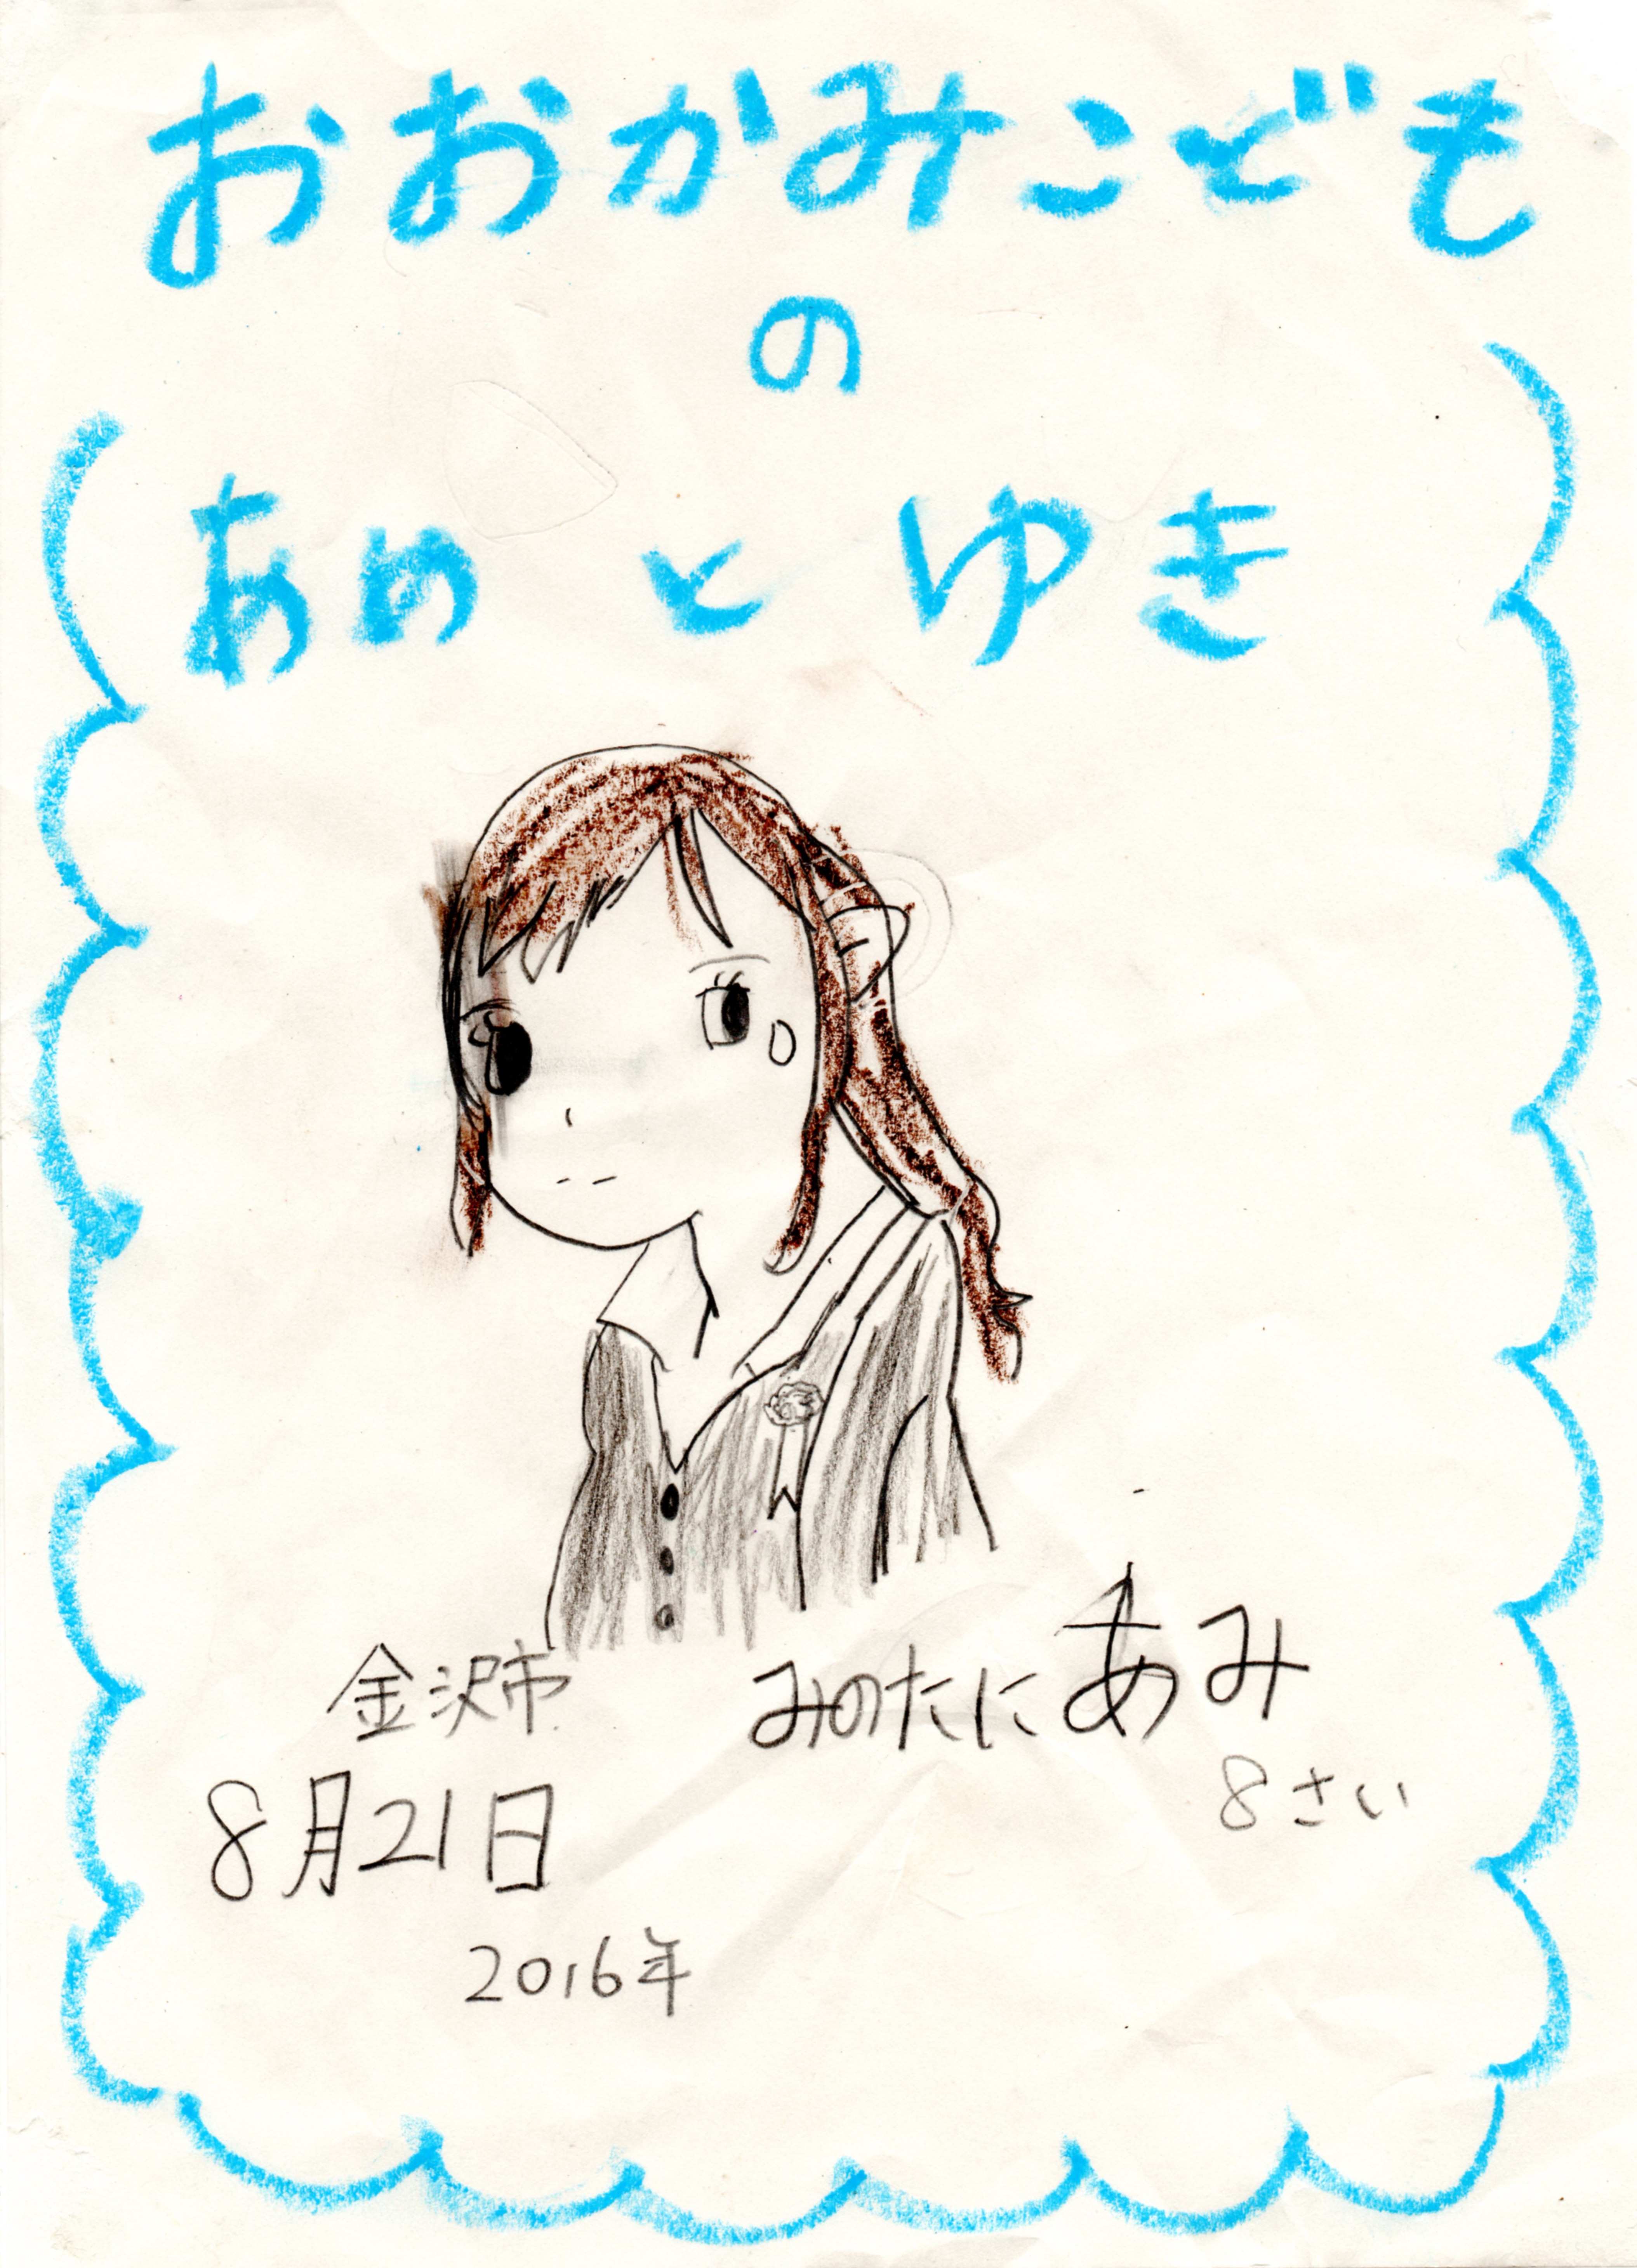 おおかみこども
の
あめ と ゆき
金沢市 みのたに あみ
8さい
8月21日
2016年